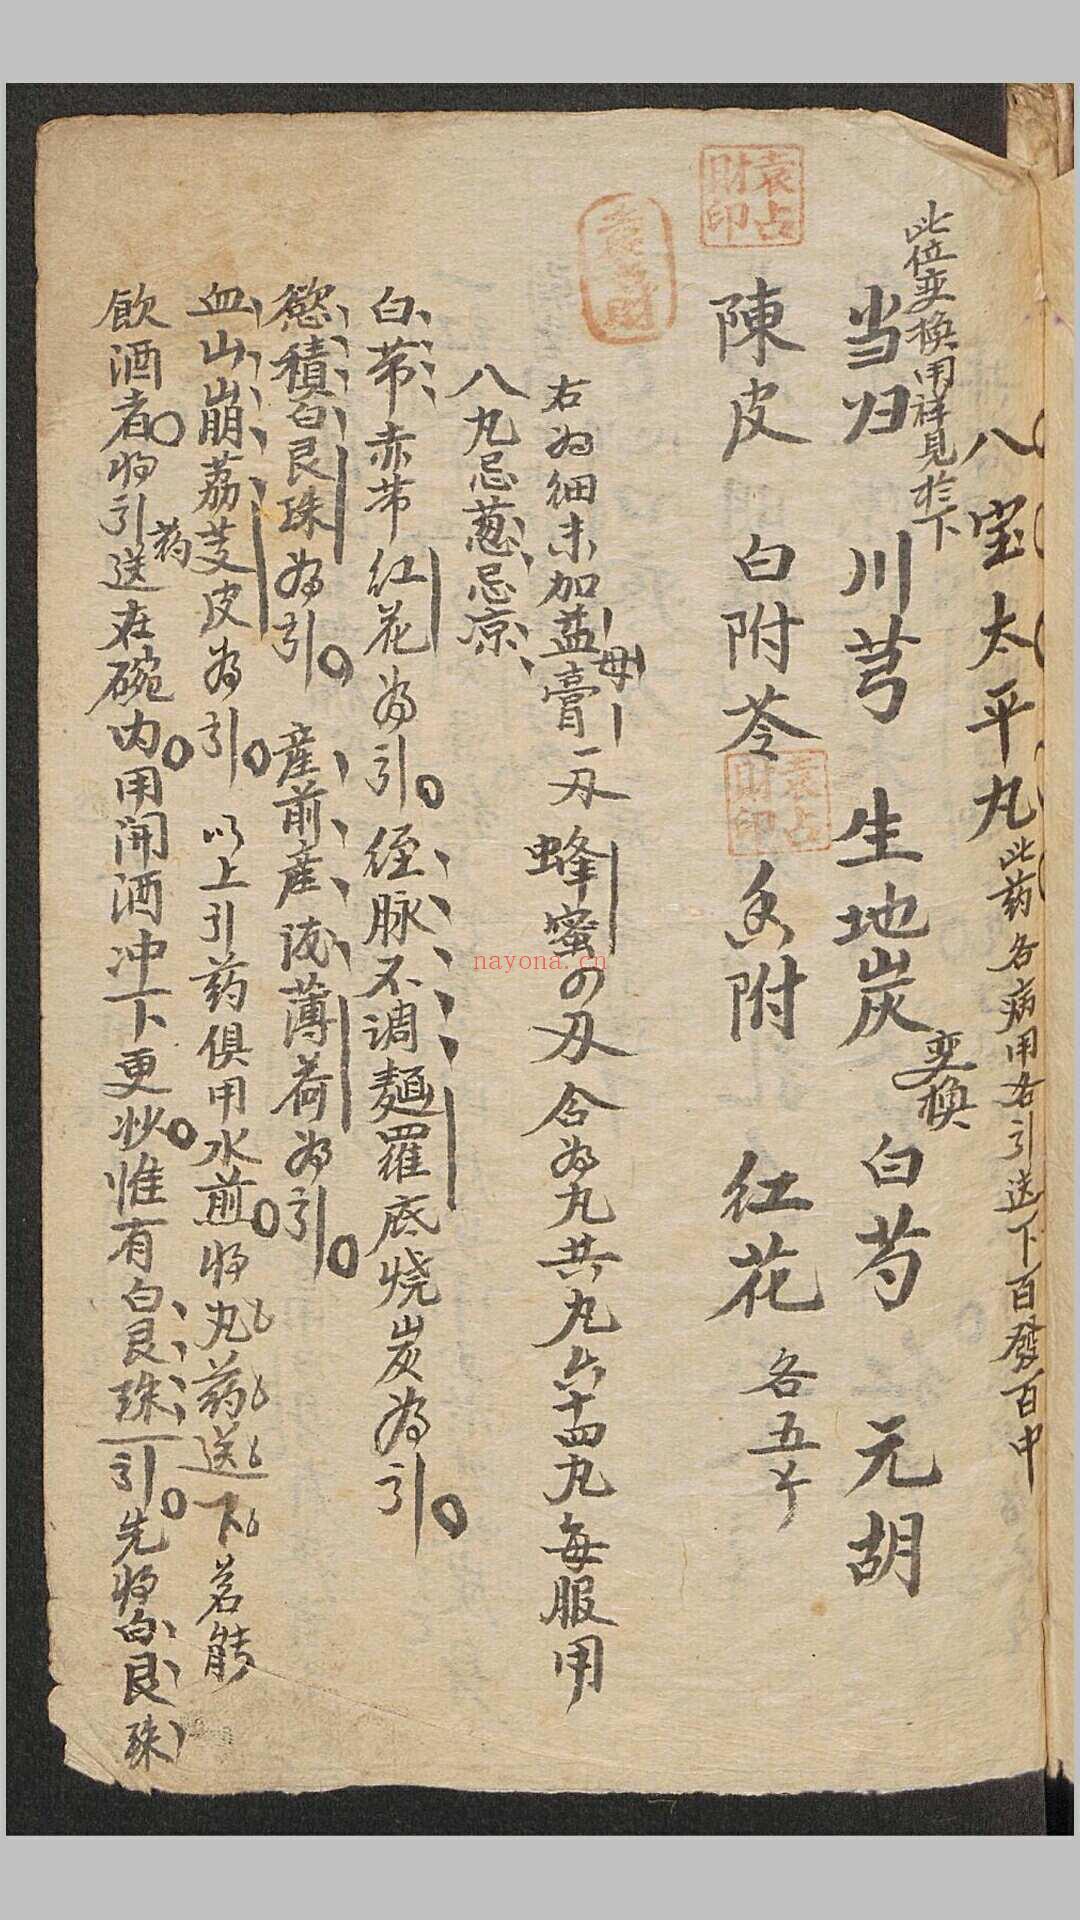 八宝太平丸此药各病用各引送下百發百中
此位变換用祥見於下
当归 川芎 生地炭 白芍 元胡
变换
陳皮 白附苓 香附 红花 各五
右为细末加益母膏一刄 蜂蜜の刄 合为丸共丸六十四丸每服用
八丸忌葱忌凉
白带赤带红花为引 经脉不调麵羅底烧炭为引
慾積白艮珠为引 産前産後薄荷为引
血山崩荔芰皮为引 以上引药俱用水煎将丸药送下若能
飲酒者将引药送在碗内用開酒冲下更妙惟有白艮珠引先将白艮珠
袁占財印
袁占財
袁占財印
nayona.cn